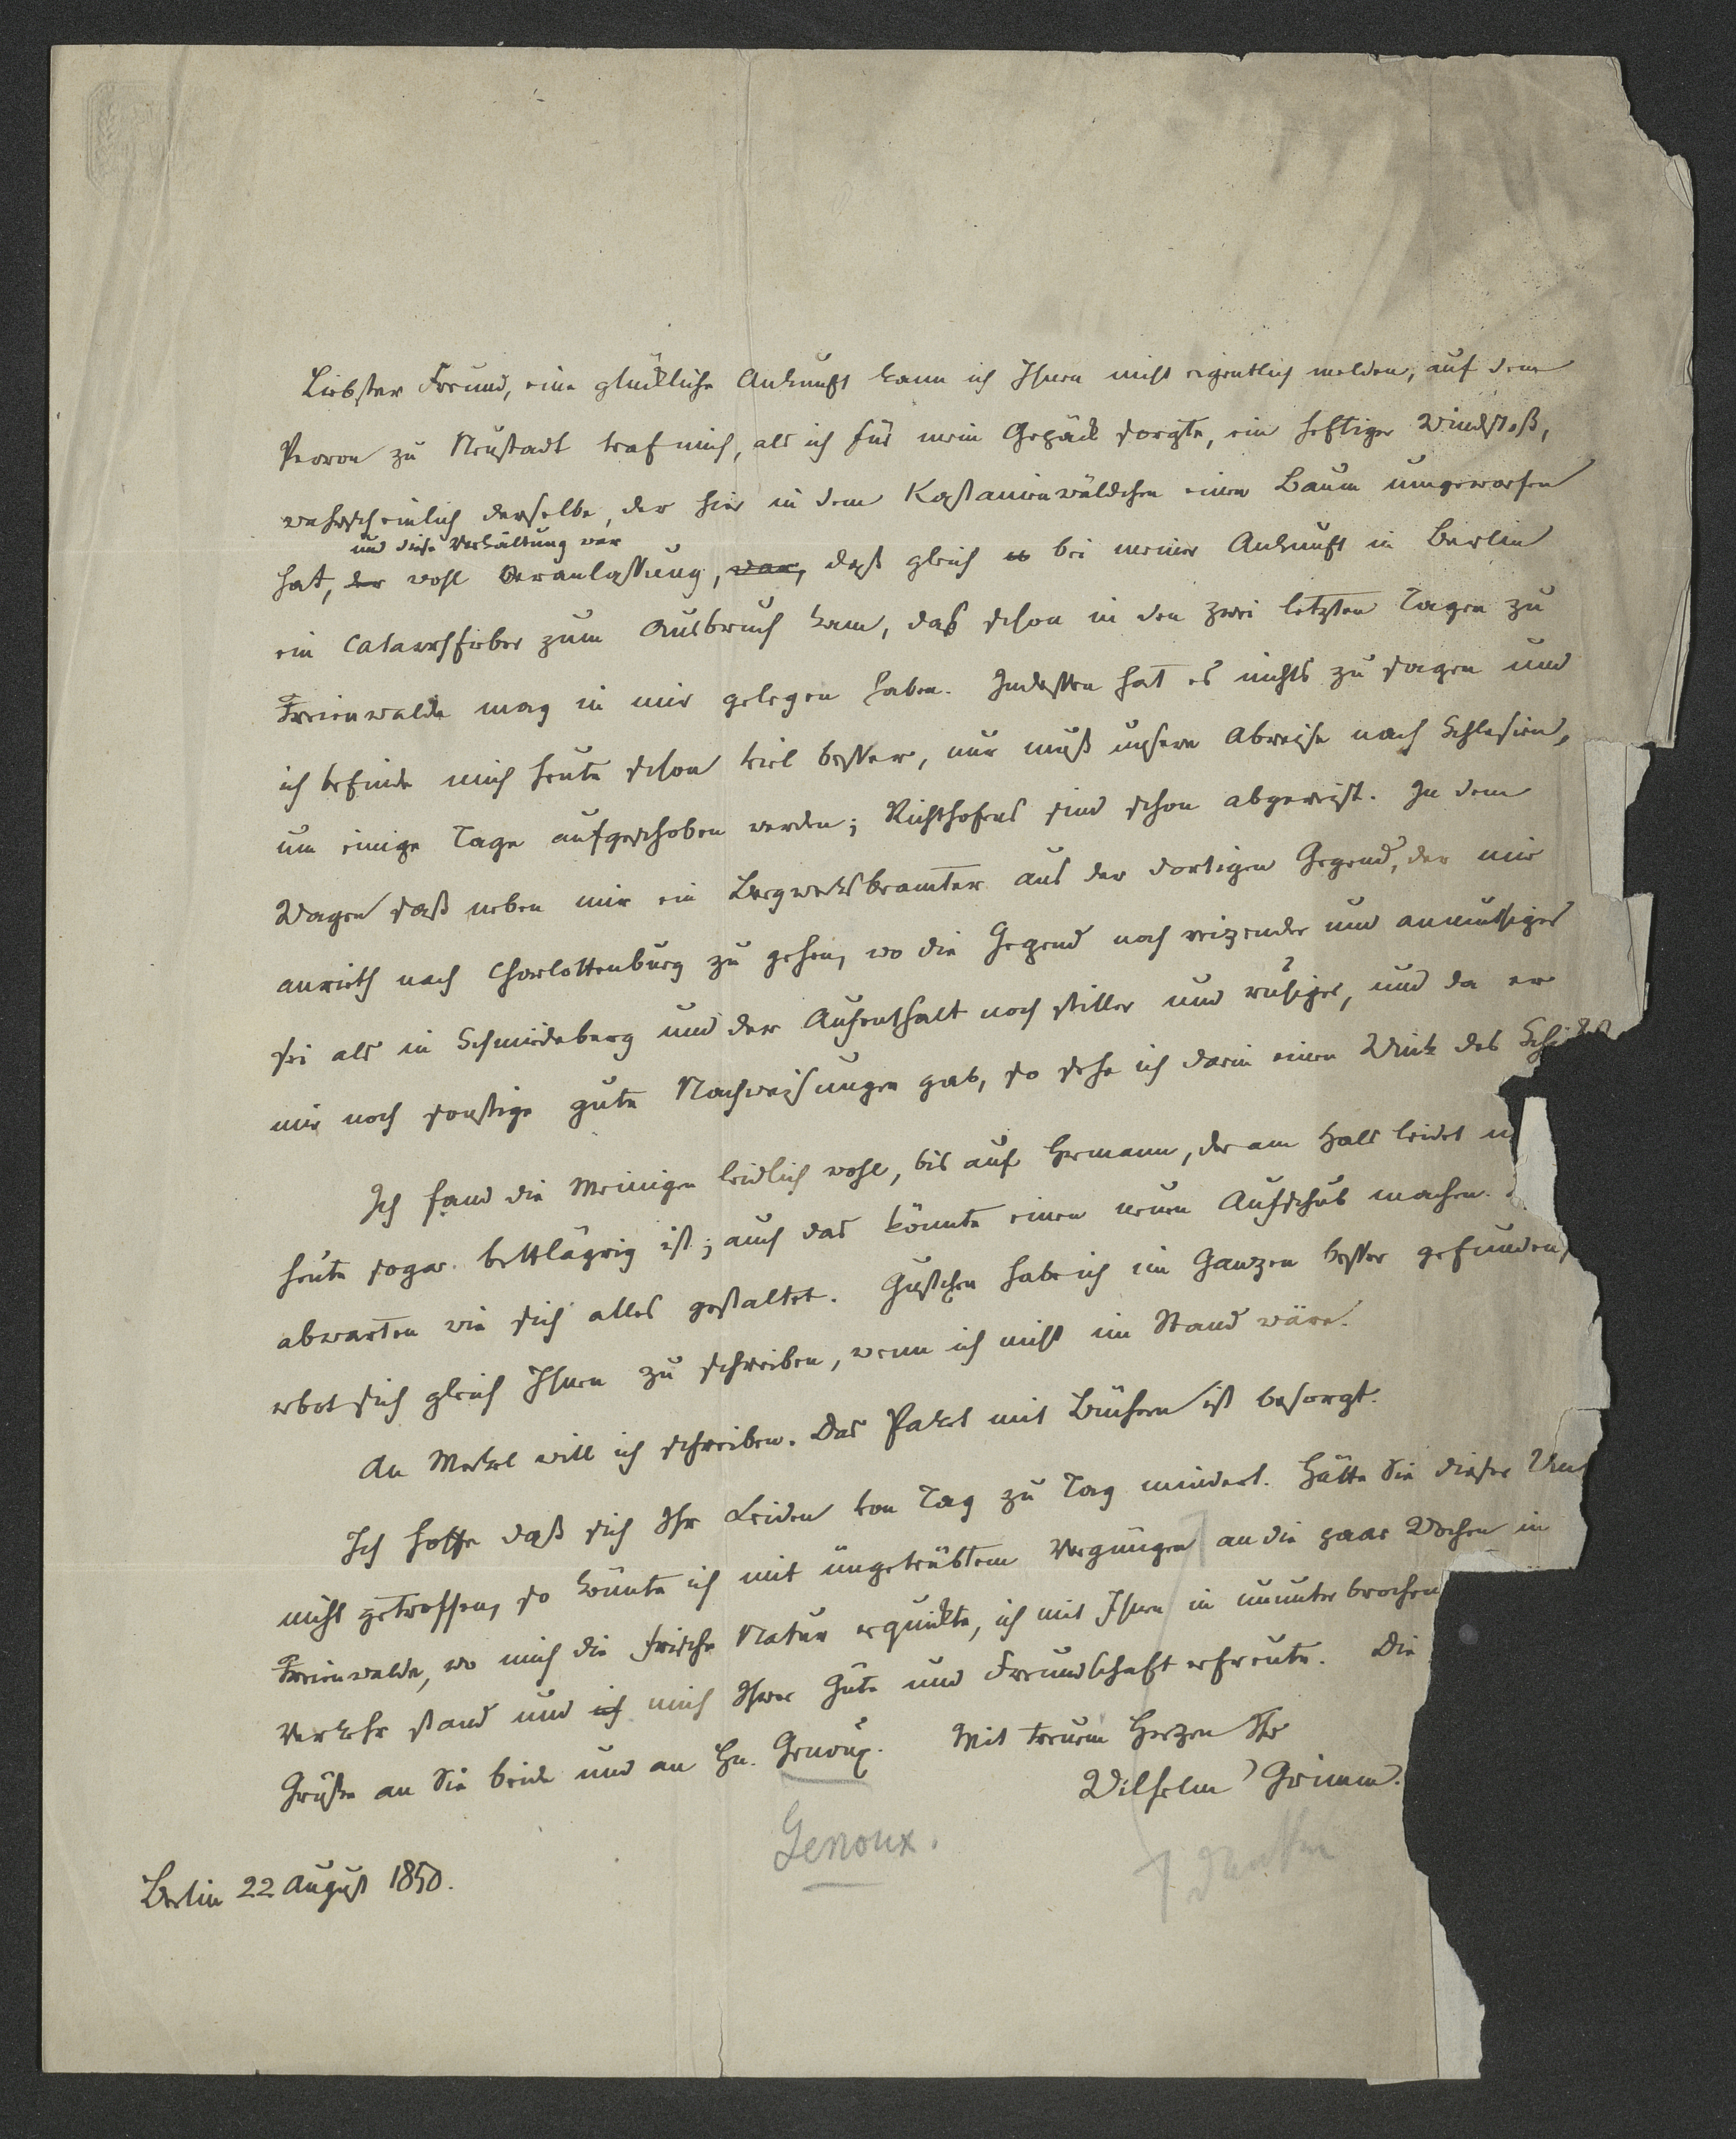 Liebster Freund, eine glückliche Ankunft kann ich Ihnen nicht eigentlich melden; auf dem
Perron zu Neustadt traf mich, als ich für mein Gepäck sorgte, ein heftiger Windstoß,
wahrscheinlich derselbe, der hier in dem Kastanienwäldchen einen Baum umgeworfen
und diese Verkältung war
hat, der wohl Veranlassung, war, daß gleich es bei meiner Ankunft in Berlin
ein Catarrhfieber zum Ausbruch kam, das schon in den zwei letzten Tagen zu
Freienwalde mag in mir gelegen haben. Indessen hat es nichts zu sagen und
ich befinde mich heute schon viel besser, nur muß unsere Abreise nach Schlesien,
um einige Tage aufgeschoben werden; Richthofens sind schon abgereist. In dem
Wagen saß neben mir ein Bergwerksbeamter aus der dortigen Gegend, der mir
anrieth nach Charlottenburg zu gehen, wo die Gegend noch reizender und anmuthiger
sei als in Schmiedeberg und der Aufenthalt noch stiller und ruhiger, und da er
mir noch sonstige gute Nachweisungen gab, so sehe ich darin einen Wink des
Ich fand die Meinigen leidlich wohl, bis auf Hermann, der am Hals leidet
heute sogar bettlägrig ist; auch das könnte einen neuen Aufschub machen.
abwarten wie sich alles gestaltet. Gustchen habe ich im Ganzen besser gefunden,
erbot sich gleich Ihnen zu schreiben, wenn ich nicht im Stand wäre.
An Merkel will ich schreiben. Das Paket mit Büchern ist besorgt.
Ich hoffe daß sich Ihr Leiden von Tag zu Tag mindert. Hätte Sie dieser
nicht getroffen, so könnte ich mit ungetrübtem Vergnügen an die paar Wochen in
Freienwalde, wo mich die frische Natur erquickte, ich mit Ihnen in ununterbrochen
Verkehr stand und ich mich Ihrer Güte und Freundschaft erfreute. Die
Grüße an Sie beide und an Hn. Genoux. Mit treuem Herzen Ihr
Wilhelm Grimm.
Genoux.
Berlin 22 August 1850.